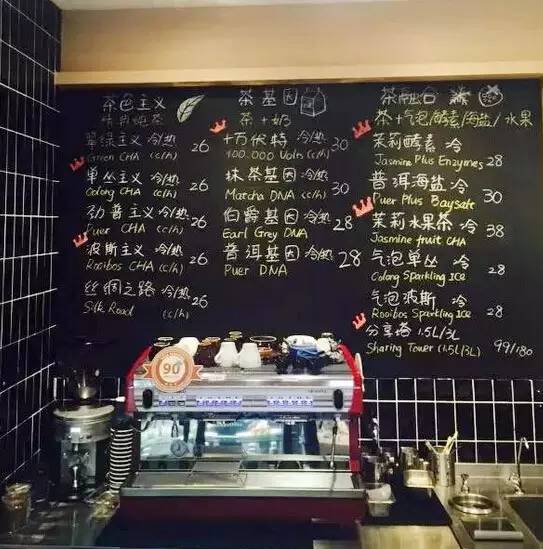 茶色主义
特调炖茶
翠绿主义 冷/热 26
Green CHA (c/h)
单丛主义 冷/热 26
Oolong CHA (c/h)
劲普主义 冷/热 26
Puer CHA (c/h)
波斯主义 冷/热 26
Rooibos CHA (c/h)
丝绸之路 冷/热 26
Silk Road (c/h)
茶基因
茶+奶
十万伏特 冷/热 30
100.000 Volts (c/h)
抹茶基因 冷/热 30
Matcha DNA (c/h)
伯爵基因 冷/热 28
Earl Grey DNA
普洱基因 冷/热 28
Puer DNA
茶融合
茶+气泡/酵素/海盐/水果
茉莉酵素 冷
Jasmine Plus Enzymes 28
普洱海盐 冷
Puer Plus Baysalt 30
茉莉水果茶 冷 38
Jasmine fruit CHA
气泡单丛 冷
Oolong Sparkling ICE 28
气泡波斯 冷
Rooibos Sparkling ICE 28
分享塔 1.5L/3L
Sharing Tower (1.5L/3L) 99/180
90